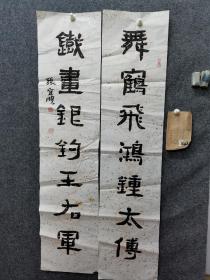 舞鶴飛鴻鍾太傅
鐵畫銀鈎王右軍